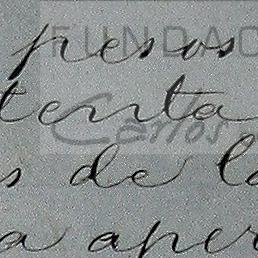 pesos
tenta
s de la
a aper
FUNDAC
Carlos